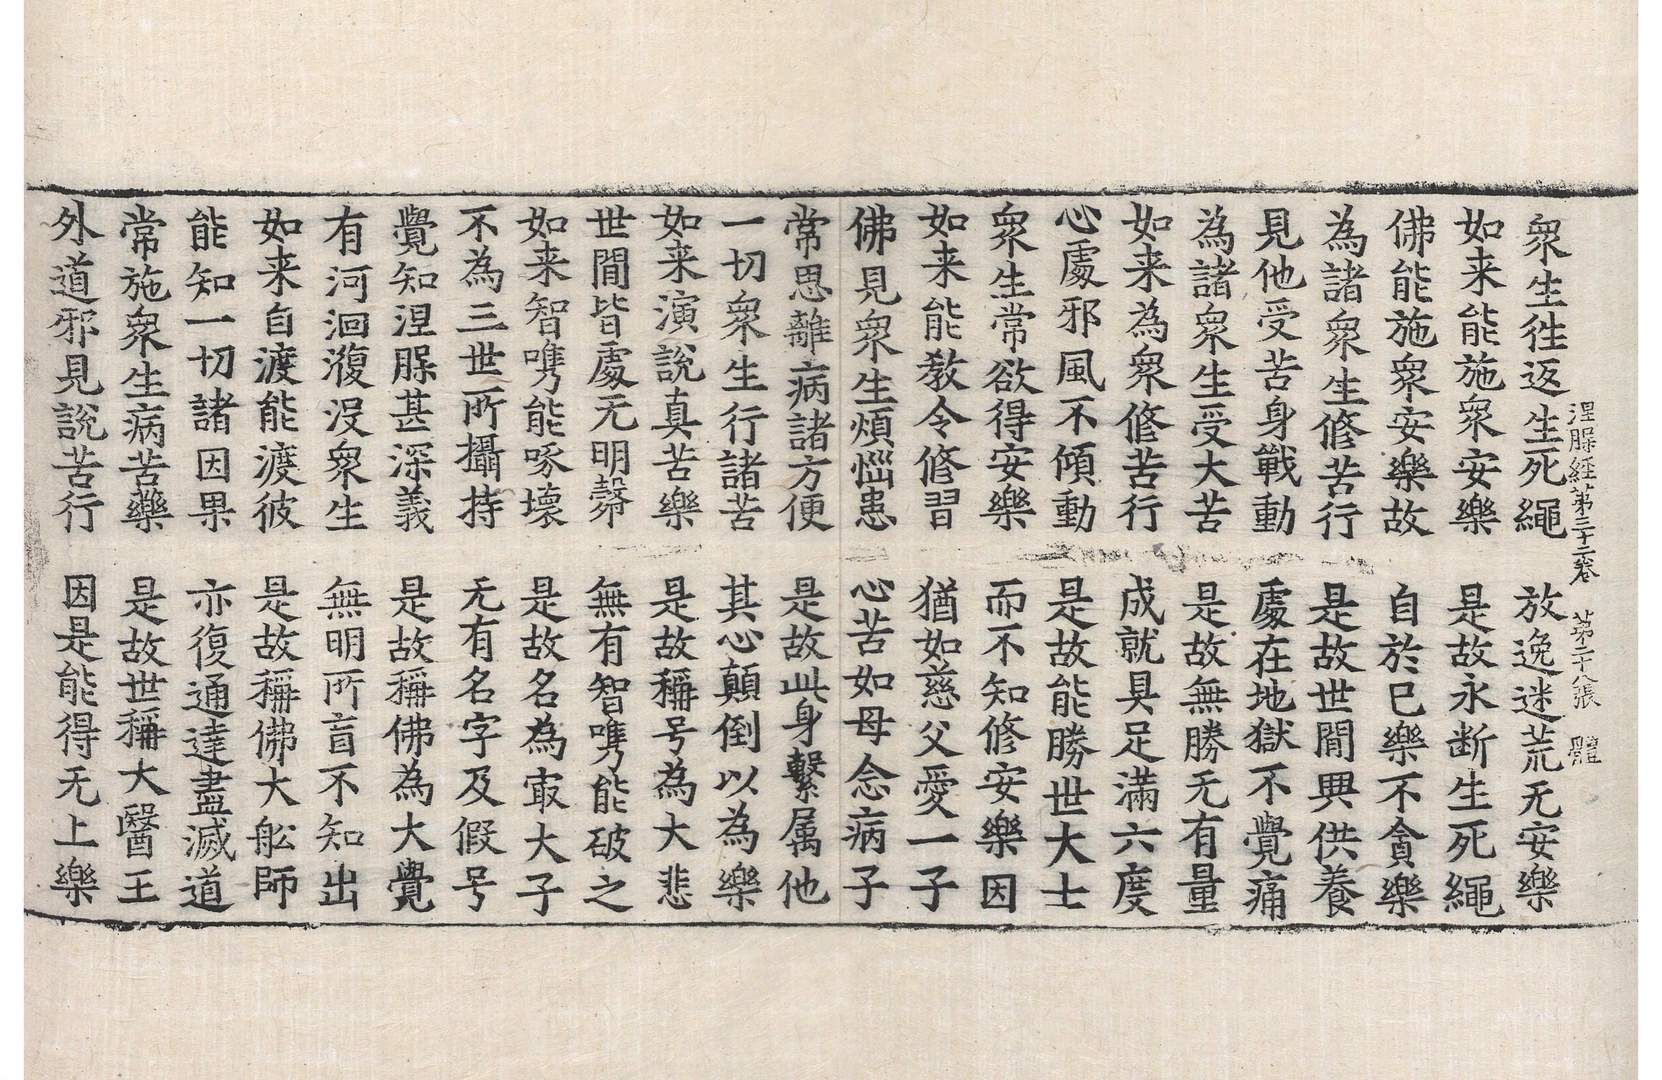 涅槃經第三十二卷 第二十八張 體
衆生往返生死繩 放逸迷荒无安樂
如来能施衆安樂 是故永断生死繩
佛能施衆安樂故 自於己樂不貪樂
為諸衆生修苦行 是故世間興供養
見他受苦身戰動 處在地獄不覺痛
為諸衆生受大苦 是故無勝无有量
如来為衆修苦行 成就具足滿六度
心處邪風不傾動 是故能勝世大士
衆生常欲得安樂 而不知修安樂因
如来能教令修習 猶如慈父愛一子
佛見衆生煩惱患 心苦如母念病子
常思離病諸方便 是故此身繫属他
一切衆生行諸苦 其心顛倒以為樂
如来演說真苦樂 是故稱号為大悲
世間皆處无明㲉 無有智嘴能破之
如来智嘴能啄壞 是故名為冣大子
不為三世所攝持 无有名字及假号
覺知涅槃甚深義 是故稱佛為大覺
有河洄澓没衆生 無明所盲不知出
如来自渡能渡彼 是故稱佛大舩師
能知一切諸因果 亦復通達盡滅道
常施衆生病苦藥 是故世稱大醫王
外道邪見說苦行 因是能得无上樂